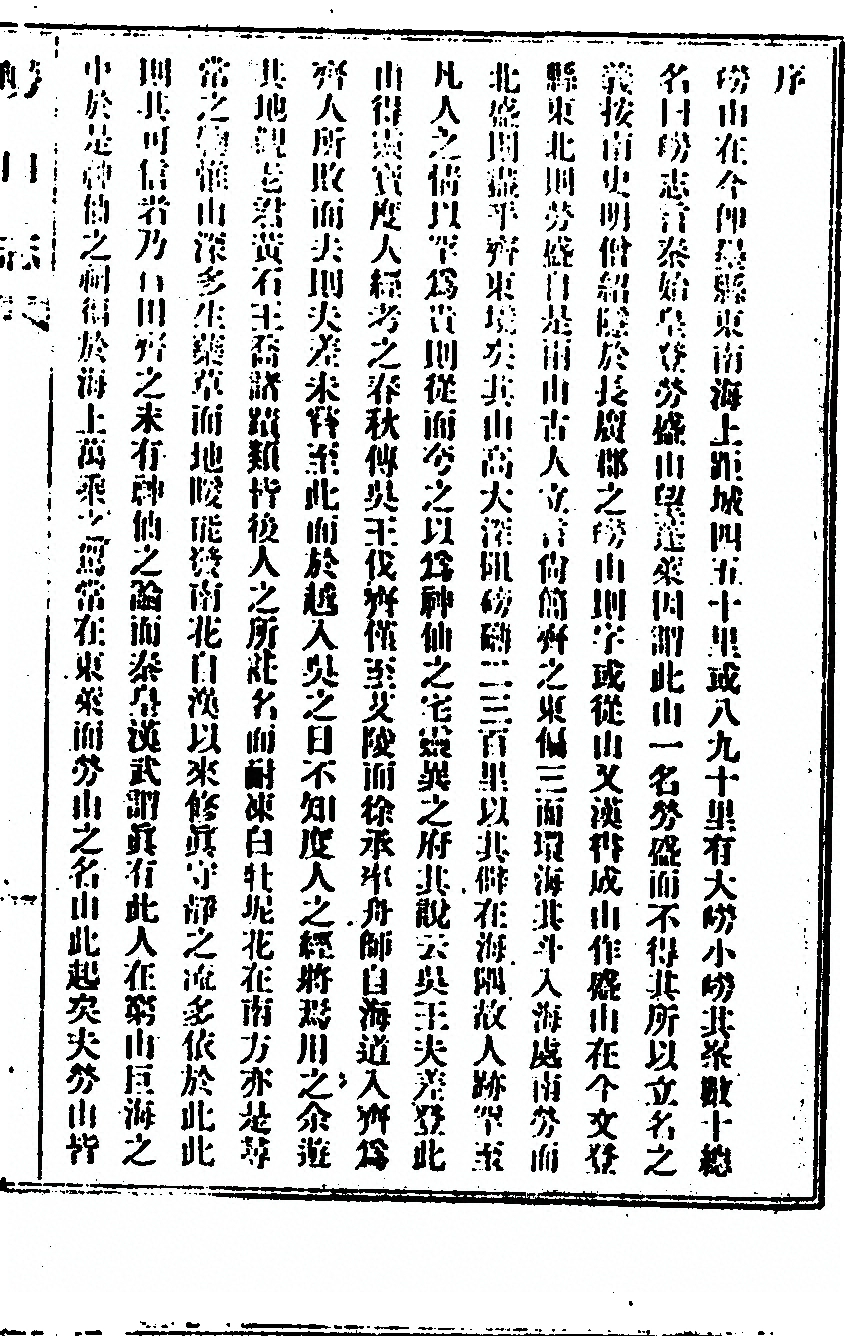 序
嶗山在今卽墨縣東南海上距城四五十里或八九十里有大嶗小嶗其峯數十總
名曰嶗志言秦始皇登勞盛山望蓬萊因謂此山一名勞盛而不得其所以立名之
義按南史明僧紹隱於長廣郡之嶗山則字或從山又漢書成山作盛山在今文登
縣東北則勞盛自是兩山古人立言尙簡齊之東偏三面環海其斗入海處南勞而
北盛則盡乎齊東境矣其山高大深阻磅礴二三百里以其僻在海隅故人跡罕至
凡人之情以罕爲貴則從而夸之以爲神仙之宅靈異之府其說云吳王夫差登此
山得靈寶度人經考之春秋傳吳王伐齊僅至艾陵而徐承率舟師自海道入齊爲
齊人所敗而去則夫差未嘗至此而於越入吳之日不知度人之經將焉用之余遊
其地觀老君黃石王喬諸蹟類皆後人之所託名而耐凍白牡丹花在南方亦是尋
常之物惟山深多生藥草而地暖能發南花自漢以來修眞守靜之流多依於此此
則其可信者乃自田齊之末有神仙之論而秦皇漢武謂眞有此人在窮山巨海之
中於是神仙之祠徧於海上萬乘之駕常在東萊而勞山之名由此起矣夫勞山皆